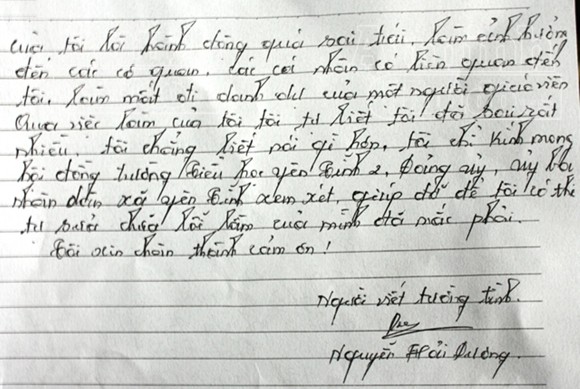 của tôi là hành động quá sai trái, làm ảnh hưởng
đến các cơ quan, các cá nhân có liên quan đến
tôi, làm mất đi danh dự của một người giáo viên
Qua việc làm của tôi tôi tự biết tôi đã sai rất
nhiều, tôi chẳng biết nói gì hơn, tôi chỉ kính mong
hội đồng trường tiểu học yên Định 2, Đảng ủy, ủy ban
nhân dân xã yên Định xem xét, giúp đỡ để tôi có thể
tự sửa chữa lỗi lầm của mình đã mắc phải.
Tôi xin chân thành cảm ơn!
Người viết tường trình.
Nguyễn Hải Dương.